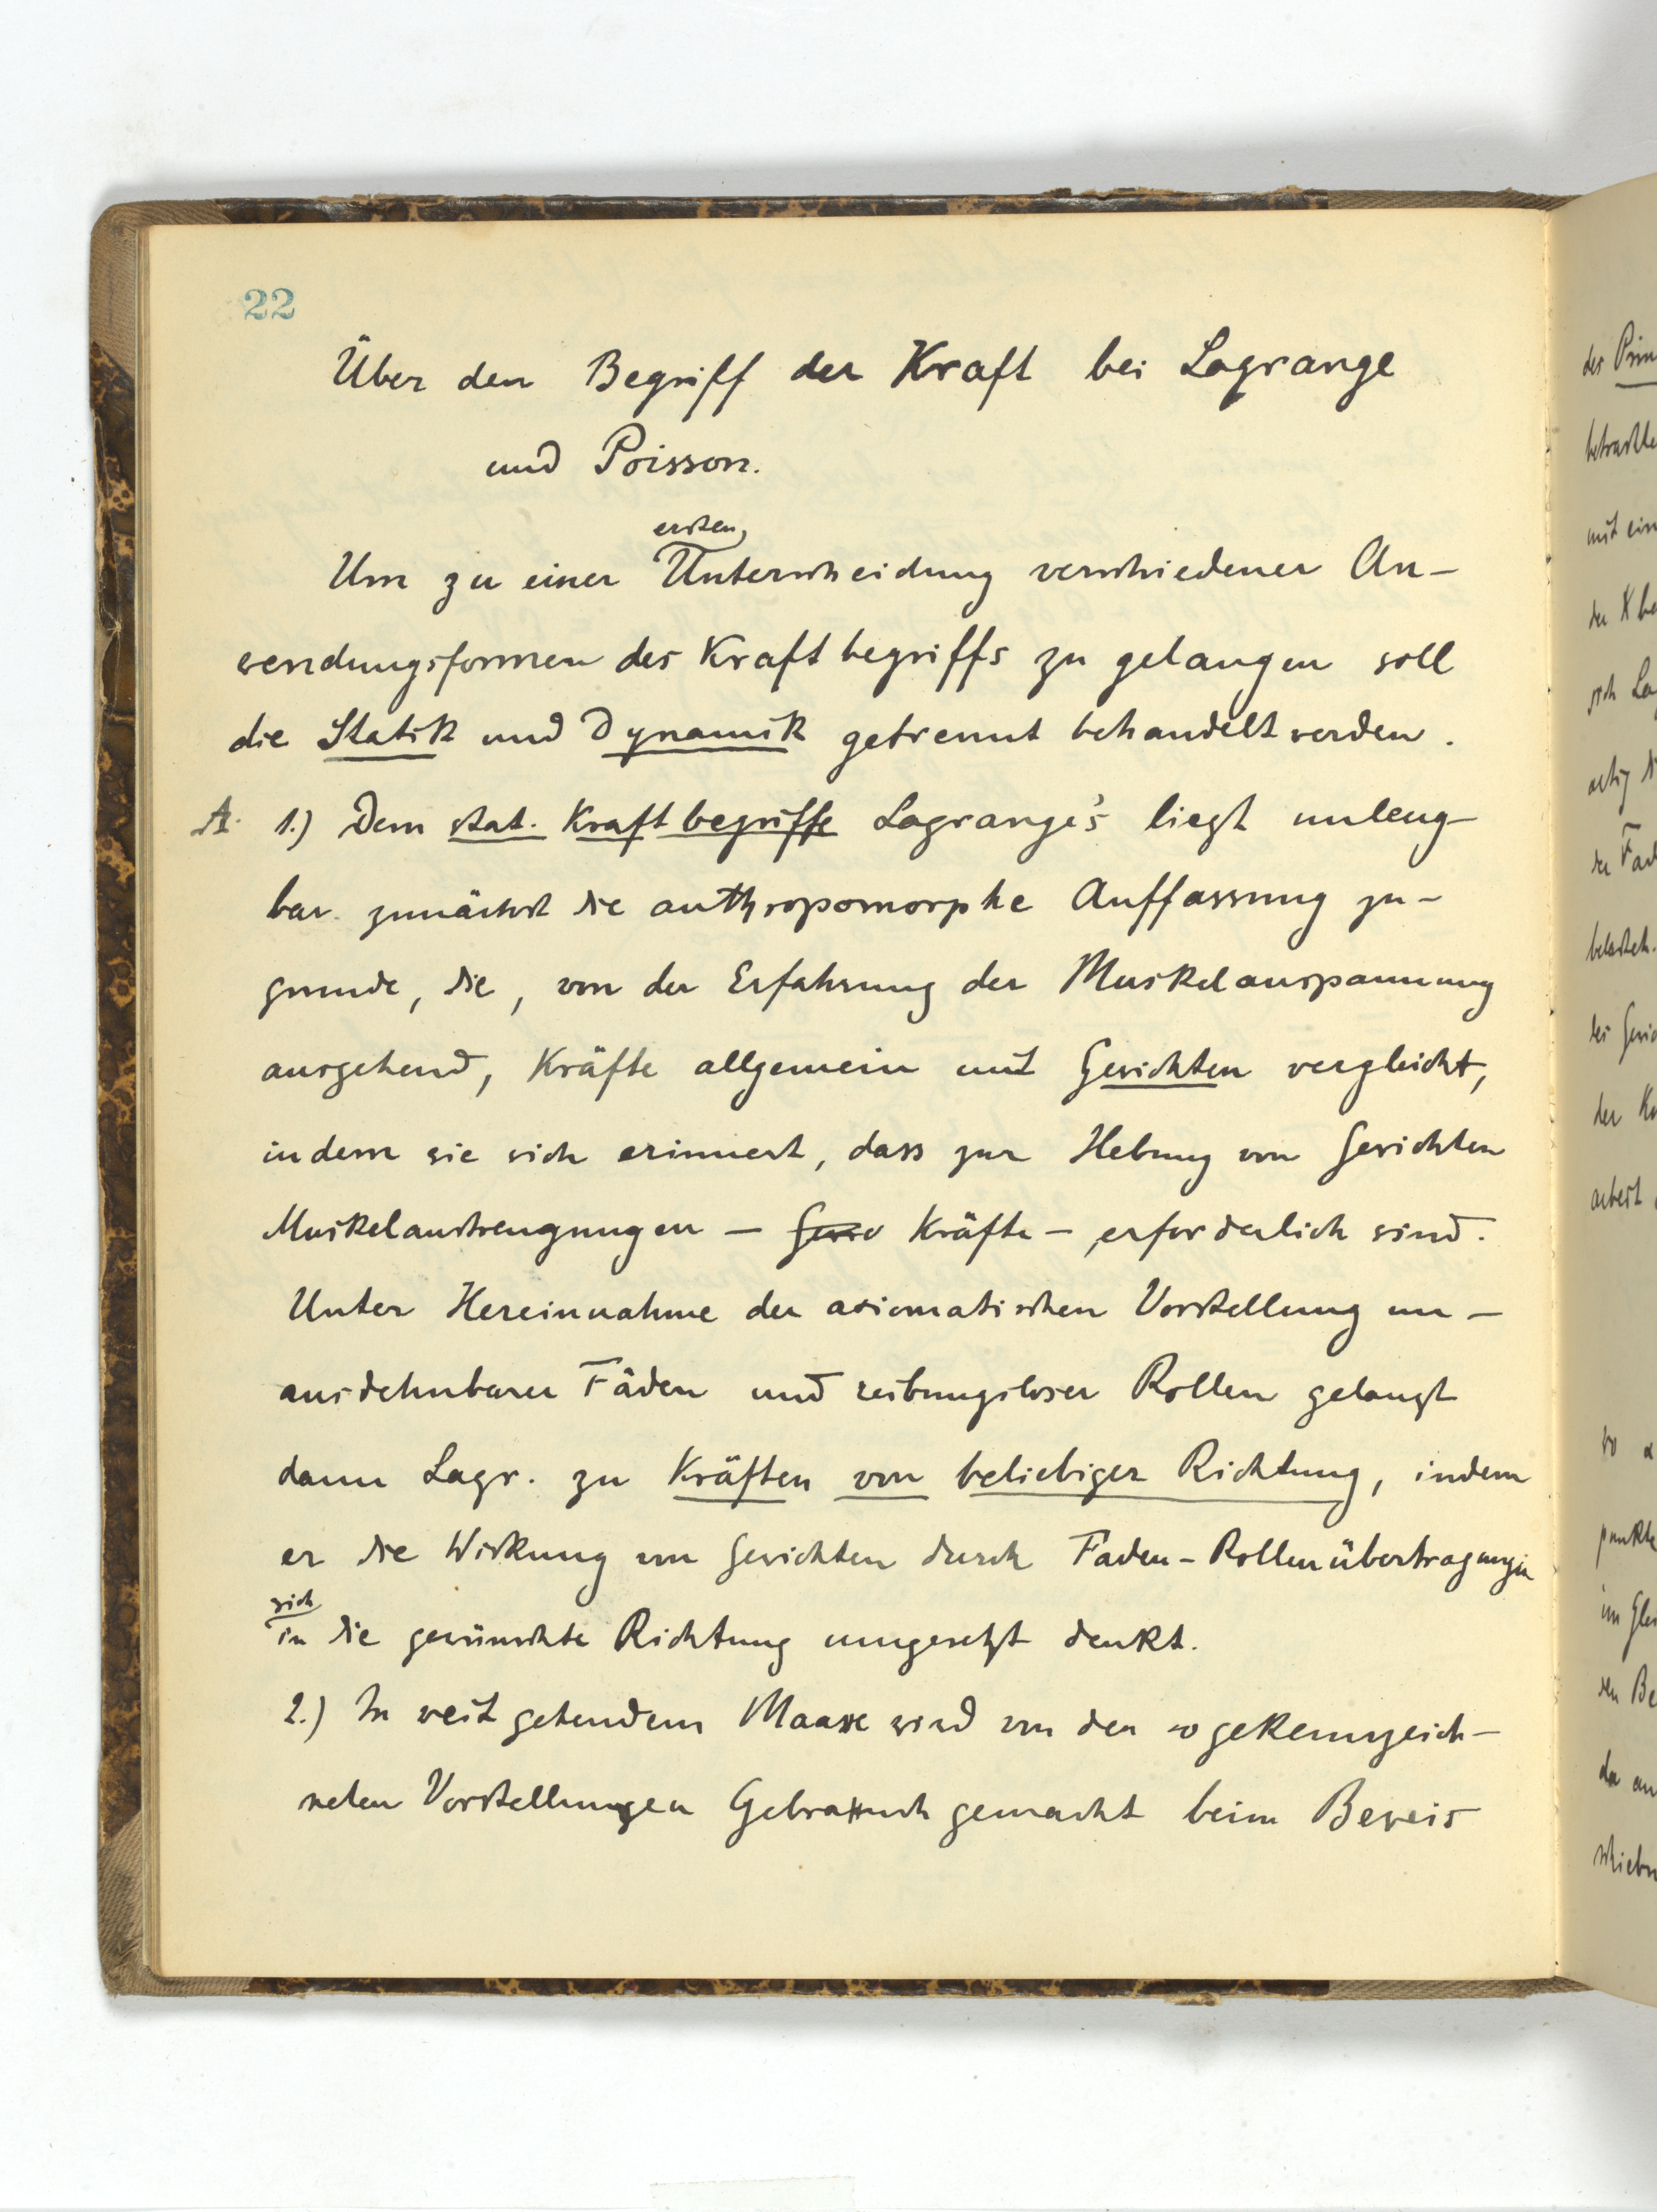 22
Über den Begriff der Kraft bei Lagrange
und Poisson.
ersten
Um zu einer Unterscheidung verschiedener An-
wendungsformen des Kraftbegriffs zu gelangen soll
die Statik und Dynamik getrennt behandelt werden.
A. 1.) Dem stat. Kraftbegriffe Lagrange's liegt unleug-
bar zunächst die anthropomorphe Auffassung zu-
grunde, die, von der Erfahrung der Muskelanspannung
ausgehend, Kräfte allgemein mit Gewichten vergleicht,
indem sie sich erinnert, dass zur Hebung von Gewichten
Muskelanstrengungen – Kräfte – erforderlich sind.
Unter Hereinnahme der axiomatischen Vorstellung un-
ausdehnbarer Fäden und reibungsloser Rollen gelangt
dann Lagr. zu Kräften von beliebiger Richtung, indem
er die Wirkung von Gewichten durch Faden-Rollenübertragungen
sich
in die gewünschte Richtung umgesetzt denkt.
2.) In weit gehendem Maasse wird von den so gekennzeich-
neten Vorstellungen Gebrauch gemacht beim Beweis
des
mit
der
der
der
arbeit
im
den
da